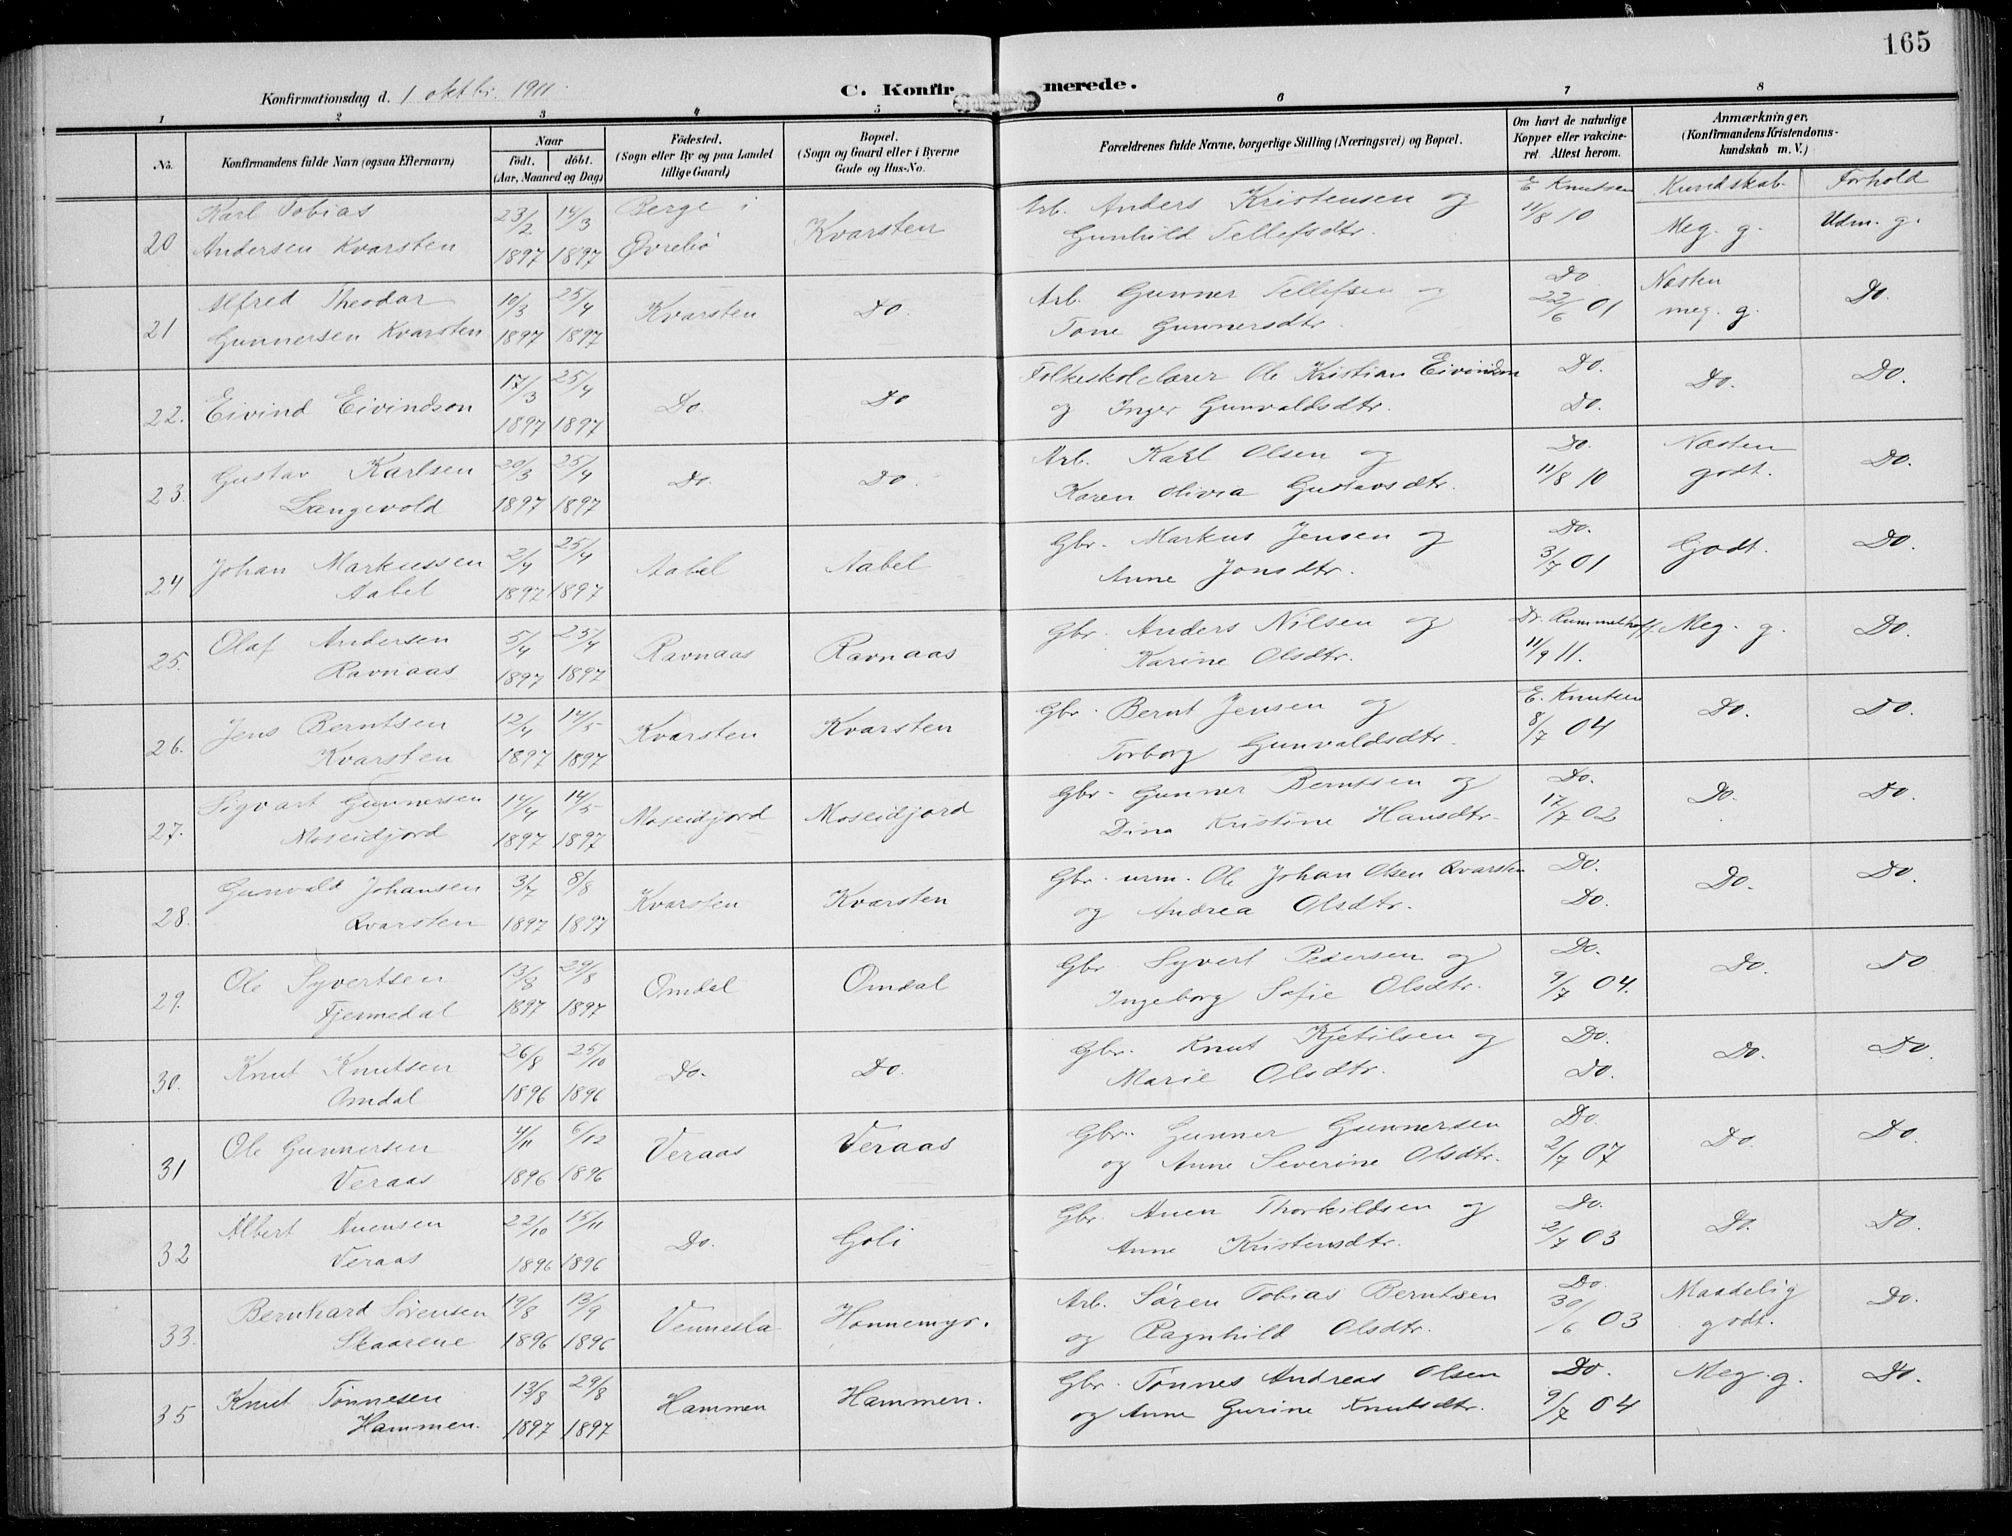 165
Konfirmationsdag d. 1 oktbr. 1911.
C. Konfirmerede.
1 2 3 4 5 6 7 8
No.
Konfirmandens fulde Navn (ogsaa Efternavn)
Naar
født. døbt.
(Aar, Maaned og Dag)
Fødested.
(Sogn eller By og paa Landet
tillige Gaard)
Bopæl.
(Sogn og Gaard eller i Byerne
Gade og Hus-No.
Forældrenes fulde Navne, borgerlige Stilling (Næringsvei) og Bopæl.
Om havt de naturlige
Kopper eller vakcine-
ret. Attest herom.
Anmærkninger,
(Konfirmandens Kristendoms-
kundskab m. V.)
Kundskab Forhold
Karl Tobias 23/2 14/3 Berge i Arb. Anders Kristensen og E. Knutsen
20 Andersen Kvarsten 1897 1897 Øvrebø Kvarsten Gunhild Tellefsdtr. 11/8 10 Meg. g. Udm. g.
Alfred Theodor 10/3 25/4 Kvarsten Do. Arb. Gunner Tellefsen og Do Næsten Do.
21 Gunnersen Kvarsten 1897 1897 Tone Gunnersdtr. 22/6 01 meg. g.
17/3 25/4 Folkeskolelærer Ole Kristian Eivindsen Do. Do. Do.
22. Eivind Eivindson 1897 1897 Do. Do og Inger Gunvaldsdtr. Do.
Gustav Karlsen 20/3 25/4 Do. Do. Arb. Karl Olsen og Do. Næsten Do.
23. Langevold 1897 1897 Karen Olivia Gustavsdtr. 11/8 10 godt.
Johan Markussen 2/4 25/4 Aabel Aabel Gbr. Markus Jensen og Do. Godt. Do.
24 Aabel 1897 1897 Anne Jonsdtr. 3/7 01
Olaf Andersen 5/4 25/4 Ravnaas Ravnaas Gbr. Anders Nilsen og Dr. Rummelhoff. Meg. g. Do.
25. Ravnaas 1897 1897 Karine Olsdtr. 11/9 11.
Jens Berntsen 12/4 14/5 Kvarsten Kvarsten Gbr. Bernt Jensen og E. Knutsen Do. Do.
26. Kvarsten 1897 1897 Torborg Gunvaldsdtr. 8/7 04
Sigvart Gunnersen 14/4 14/5 Moseidjord Moseidjord Gbr. Gunner Berntsen og Do. Do. Do.
27. Moseidjord 1897 1897 Dina Kristine Hansdtr. 17/7 02
Gunvald Johansen 3/7 8/8 Kvarsten Kvarsten Gbr. urm. Ole Johan Olsen Kvarsten Do. Do. Do.
28. Kvarsten 1897 1897 og Andrea Olsdtr. Do.
Ole Syvertsen 13/8 29/8 Omdal Omdal Gbr. Syvert Pedersen og Do. Do. Do
29. Fjermedal 1897 1897 Ingeborg Sofie Olsdtr. 9/7 04.
Knut Knutsen 26/8 25/10 Do. Do. Gbr. Knut Kjetilsen og Do. Do. Do.
30. Omdal 1896 1896 Marie Olsdtr. Do.
Ole Gunnersen 4/11 6/12 Veraas Veraas Gbr. Gunner Gunnersen Do. Do. Do.
31 Veraas 1896 1896 og Anne Severine Olsdtr. 2/7 07
Albert Auensen 22/10 15/11 Do. Goli Gbr. Auen Thorkildsen og Do. Do. Do.
32 Veraas 1896 1896 Anne Kristensdtr. 2/7 03
Bernhard Sørensen 19/8 13/9 Vennesla Honnemyr. Arb. Søren Tobias Berntsen Do. Maadelig Do.
33. Skaarene 1896 1896 og Ragnhild Olsdtr. 30/6 03 godt.
Knut Tønnesen 13/8 29/8 Hammen Hammen. Gbr. Tønnes Andreas Olsen Do. Meg. g. Do.
35 Hammen. 1897 1897 og Anne Gurine Knutsdtr. 9/7 04